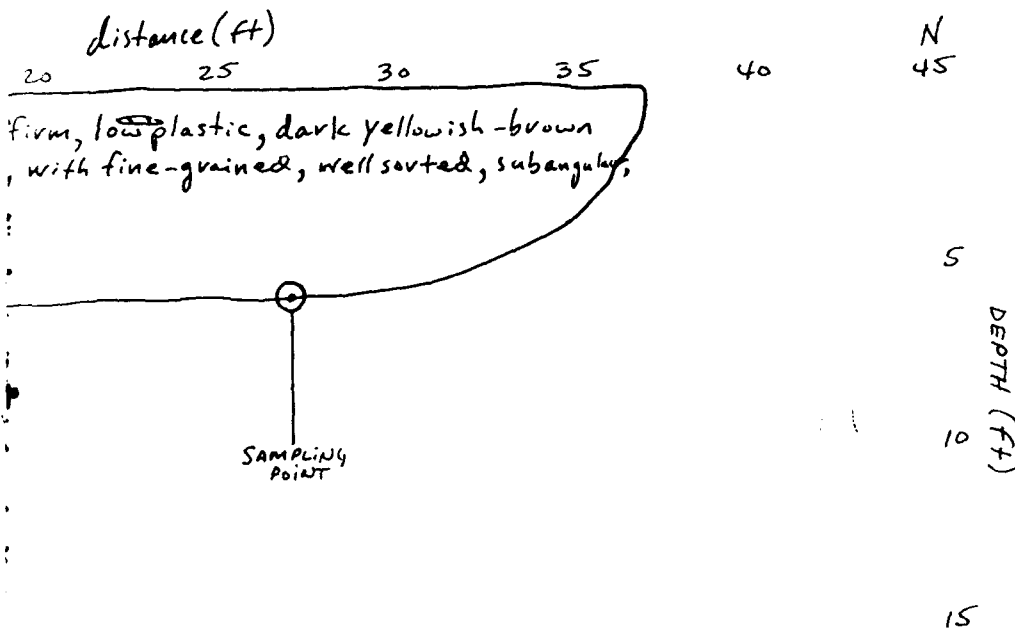 distance (ft)
N
20 25 30 35 40 45
firm, low plastic, dark yellowish-brown
, with fine-grained, well sorted, subangular,
5
DEPTH (ft)
10
SAMPLING
POINT
15